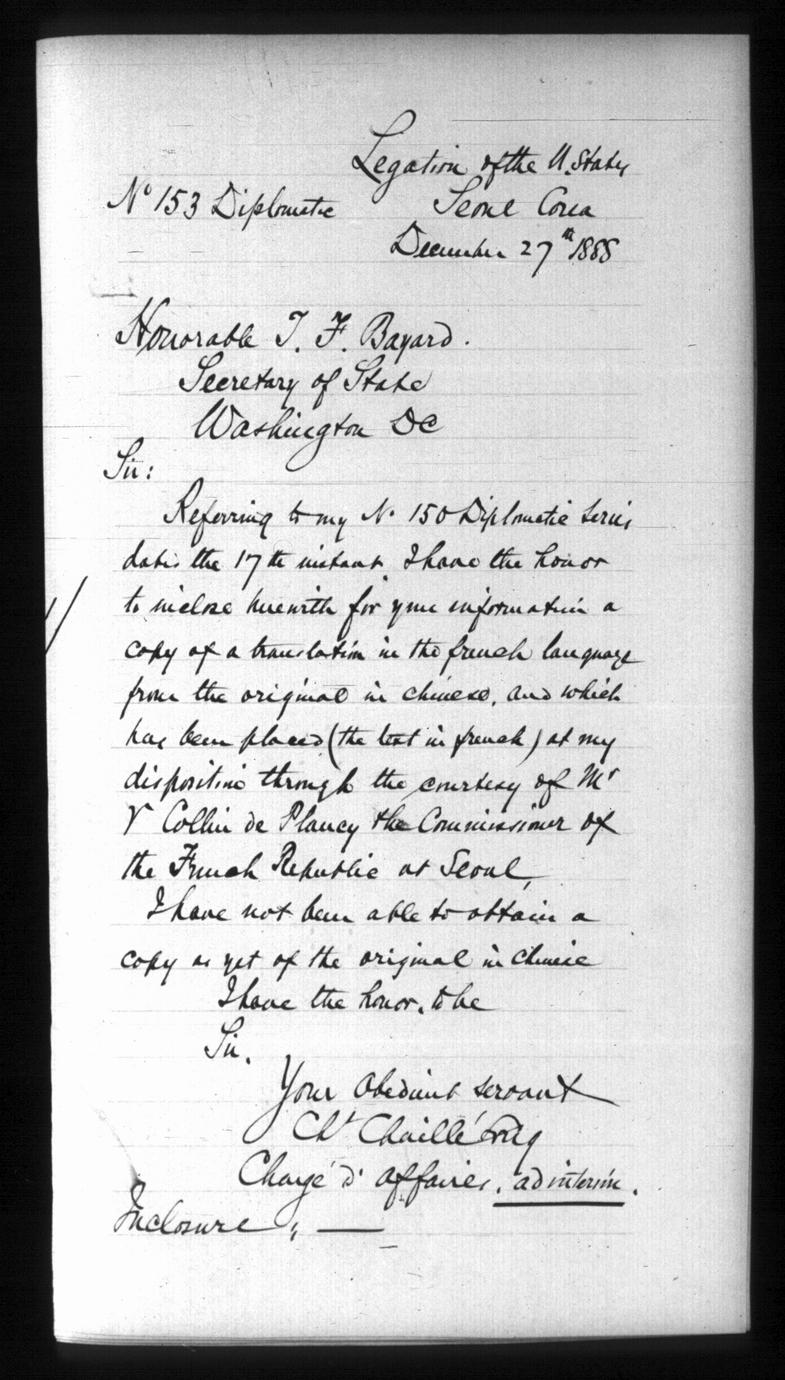 Legation of the U. States
No 153 Diplomatic Seoul Corea
December 27th 1888
Honorable T. F. Bayard.
Secretary of State
Washington DC
Sir:
Referring to my No 150 Diplomatic Series
dated the 17th instant I have the honor
to inclose herewith for your information a
copy of a translation in the french language
from the original in chinese, and which
has been placed (the text in french) at my
disposition through the courtesy of Mr
V Collin de Plancy the Commissioner of
the French Republic at Seoul,
I have not been able to obtain a
copy as yet of the original in Chinese
I have the honor, to be
Sir.
Your Obedient servant
Ch Chaillé Long
Chargé d' affaires, ad interim.
Inclosure